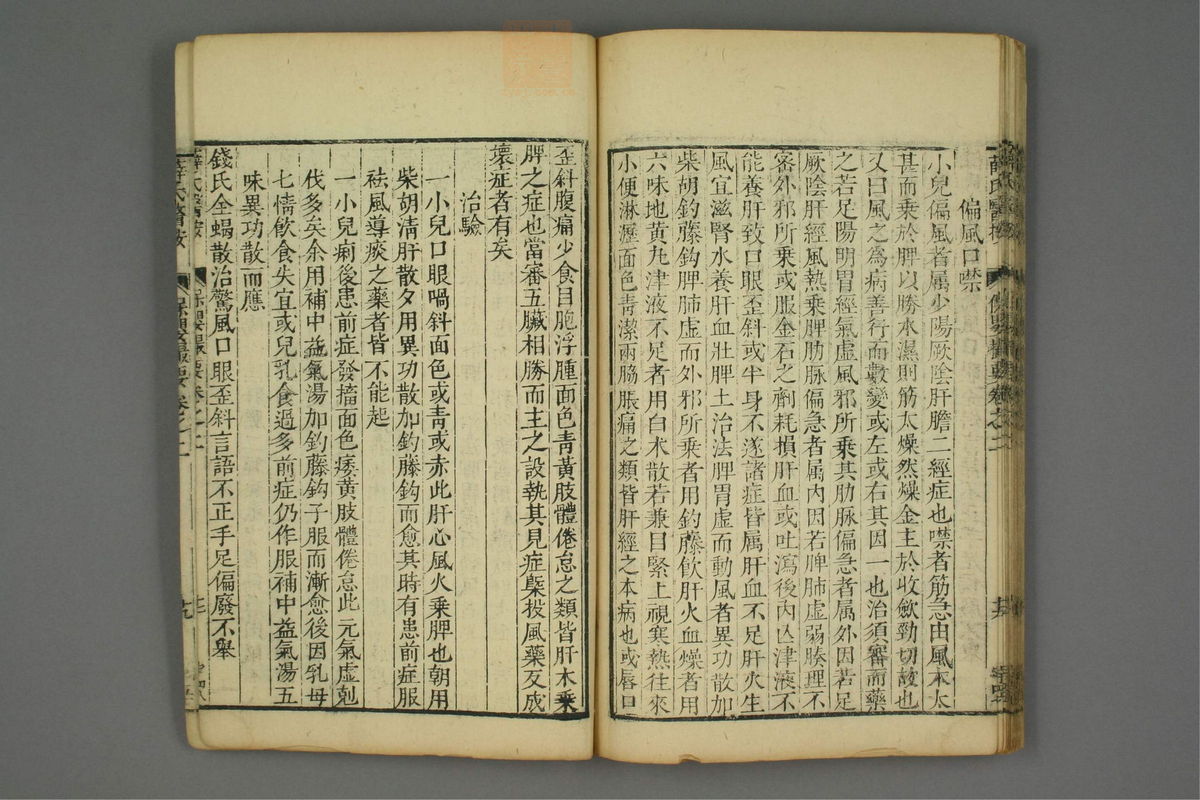 偏風口噤
小兒偏風者属少陽厥陰肝膽二經症也噤者筋急由風木太
甚而乗於脾以勝水濕則筋太燥然燥金主於收歛勁切故也
又曰風之為病善行而數變或左或右其因一也治須審而藥
之若足陽明胃經氣虚風邪所乗其肋脉偏急者属外因若足
厥陰肝經風熱乗脾肋脉偏急者属内因若脾肺虚弱腠理不
密外邪所乗或服金石之劑耗損肝血或吐瀉後内亡津液不
能養肝致口眼歪斜或半身不遂諸症皆属肝血不足肝火生
風宜滋腎水養肝血壯脾土治法脾胃虚而動風者異功散加
柴胡鈎藤鈎脾肺虚而外邪所乗者用鈎藤飲肝火血燥者用
六味地黄丸津液不足者用白术散若兼目緊上視寒熱往來
小便淋瀝面色青潔兩脇脹痛之類皆肝經之本病也或唇口
歪斜腹痛少食目胞浮腫面色青黃肢體倦怠之類皆肝木乗
脾之症也當審五臟相勝而主之設執其見症槩投風藥反成
壞症者有矣
治驗
一小兒口眼喎斜面色或青或赤此肝心風火乗脾也朝用
柴胡清肝散夕用異功散加鈎藤鈎而愈其時有患前症服
祛風導痰之藥者皆不能起
一小兒痢後患前症發搐面色痿黃肢體倦怠此元氣虚剋
伐多矣余用補中益氣湯加鈎藤鈎子服而漸愈後因乳母
七情飲食失宜或兒乳食過多前症仍作服補中益氣湯五
味異功散而應
錢氏全蝎散治驚風口眼歪斜言語不正手足偏廢不舉
薛氏醫按
保嬰撮要卷之二